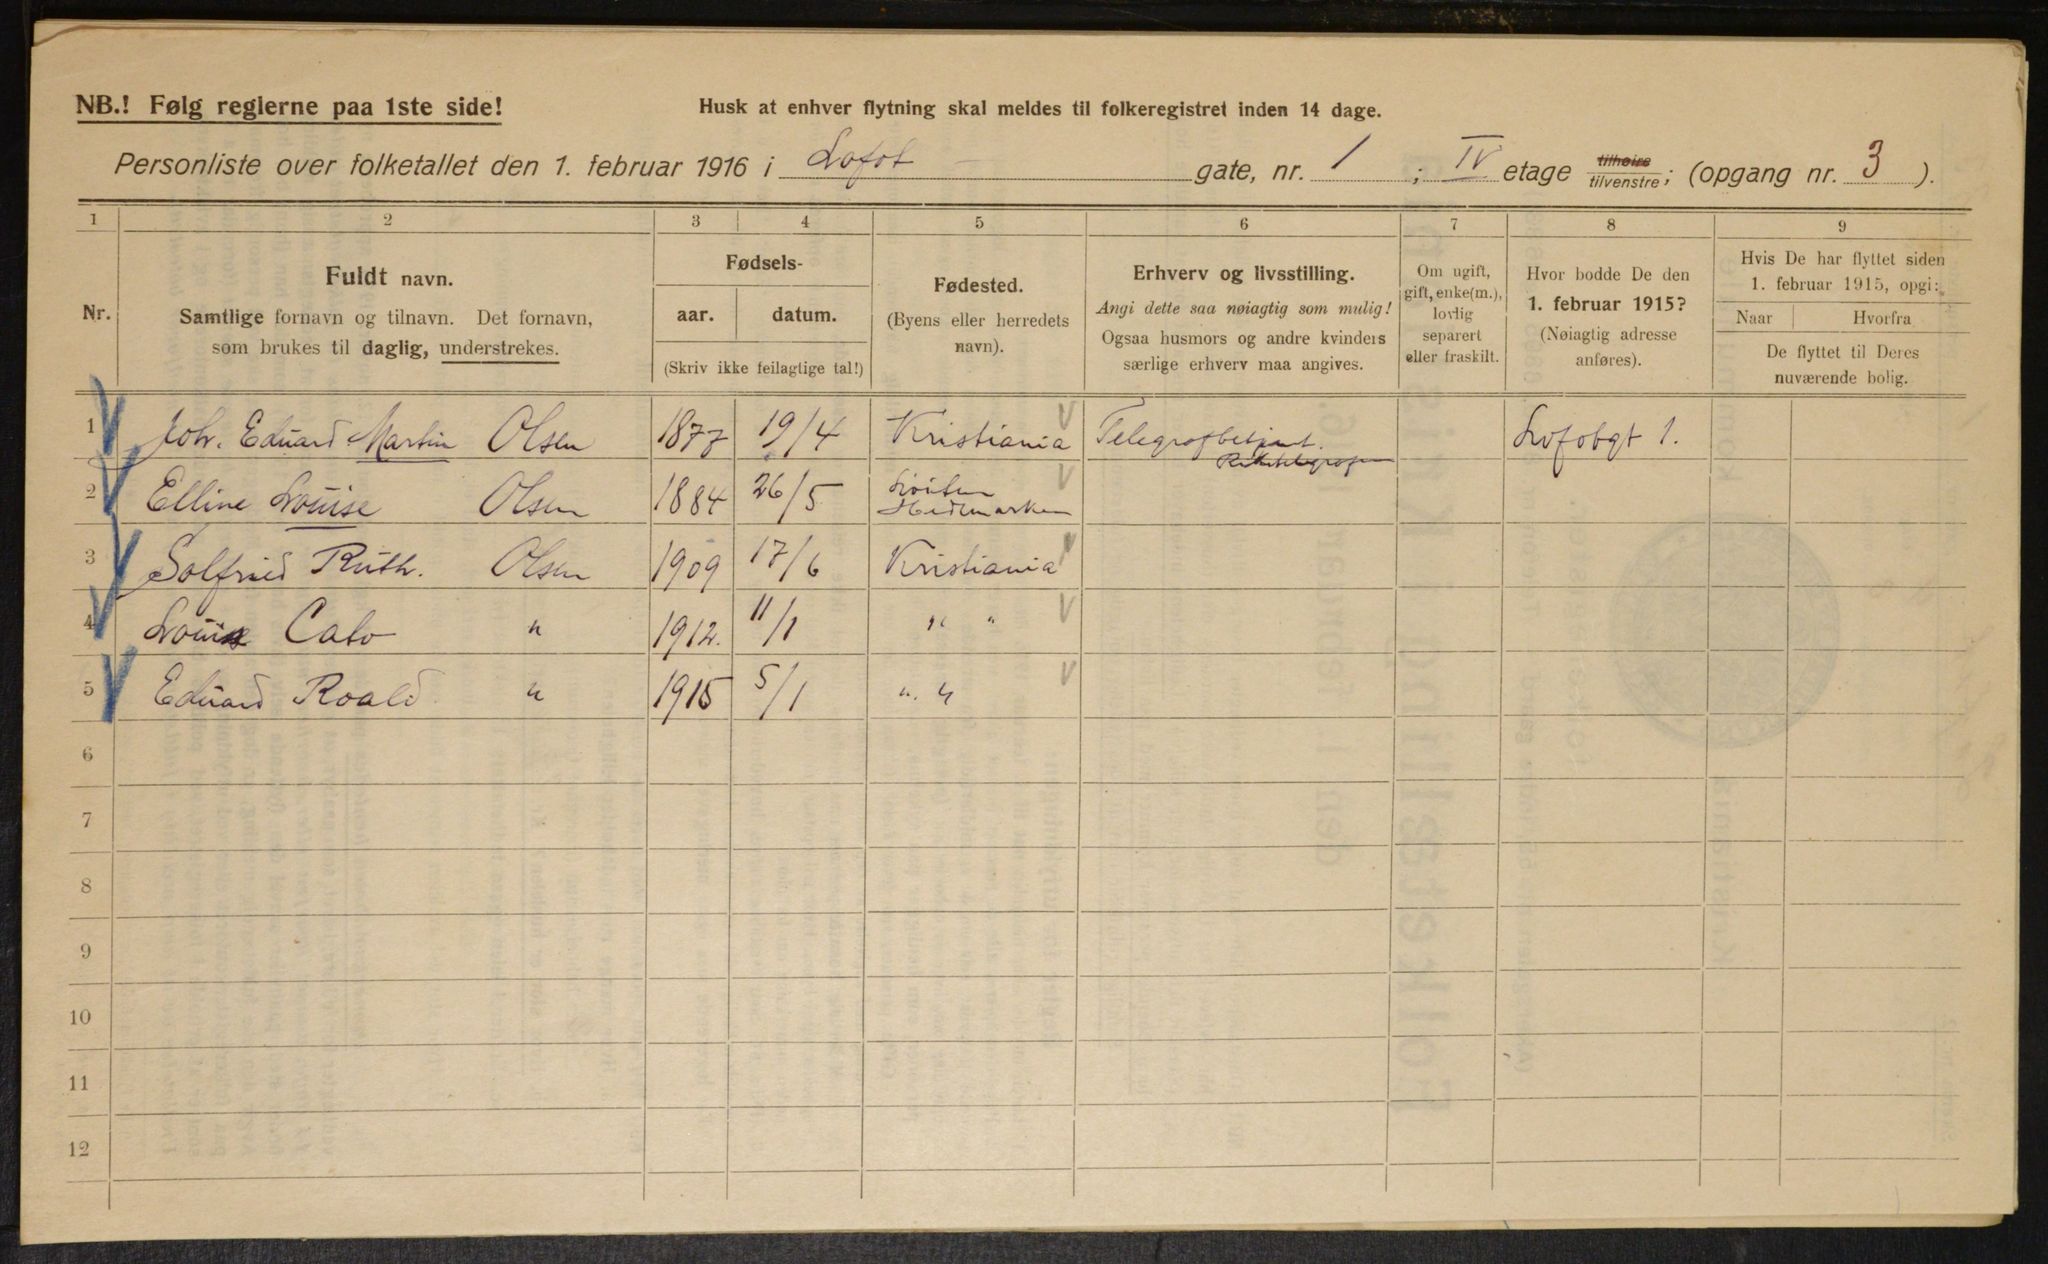 NB.! Følg reglerne paa 1ste side!
Husk at enhver flytning skal meldes til folkeregistret inden 14 dage.
Personliste over folketallet den 1. februar 1916 i Lofot gate, nr. 1 ; IV etage tilhøire tilvenstre; (opgang nr. 3 ).
1 2 3 4 5 6 7 8 9
Nr.
Fuldt navn.
Samtlige fornavn og tilnavn. Det fornavn,
som brukes til daglig, understrekes.
Fødsels-
aar. datum.
(Skriv ikke feilagtige tal!)
Fødested.
(Byens eller herredets
navn).
Erhverv og livsstilling.
Angi dette saa nøiagtig som mulig!
Ogsaa husmors og andre kvinders
særlige erhverv maa angives.
Om ugift,
gift, enke(m.),
lovlig
separert
eller fraskilt.
Hvor bodde De den
1. februar 1915?
(Nøiagtig adresse
anføres).
Hvis De har flyttet siden
1. februar 1915, opgi:
Naar Hvorfra
De flyttet til Deres
nuværende bolig.
1 Joh. Eduard Martin Olsen 1877 19/4 Kristiania Telegrafbetjent. Lofotgt 1.
Rikstelegrafen
2 Elline Louise Olsen 1884 26/5 Løiten
Hedemarken
3 Solfried Ruth. Olsen 1909 17/6 Kristiania
4 Louis Cato " 1912. 11/1 " "
5 Eduard Roald " 1915 5/1 " "
6
7
8
9
10
11
12